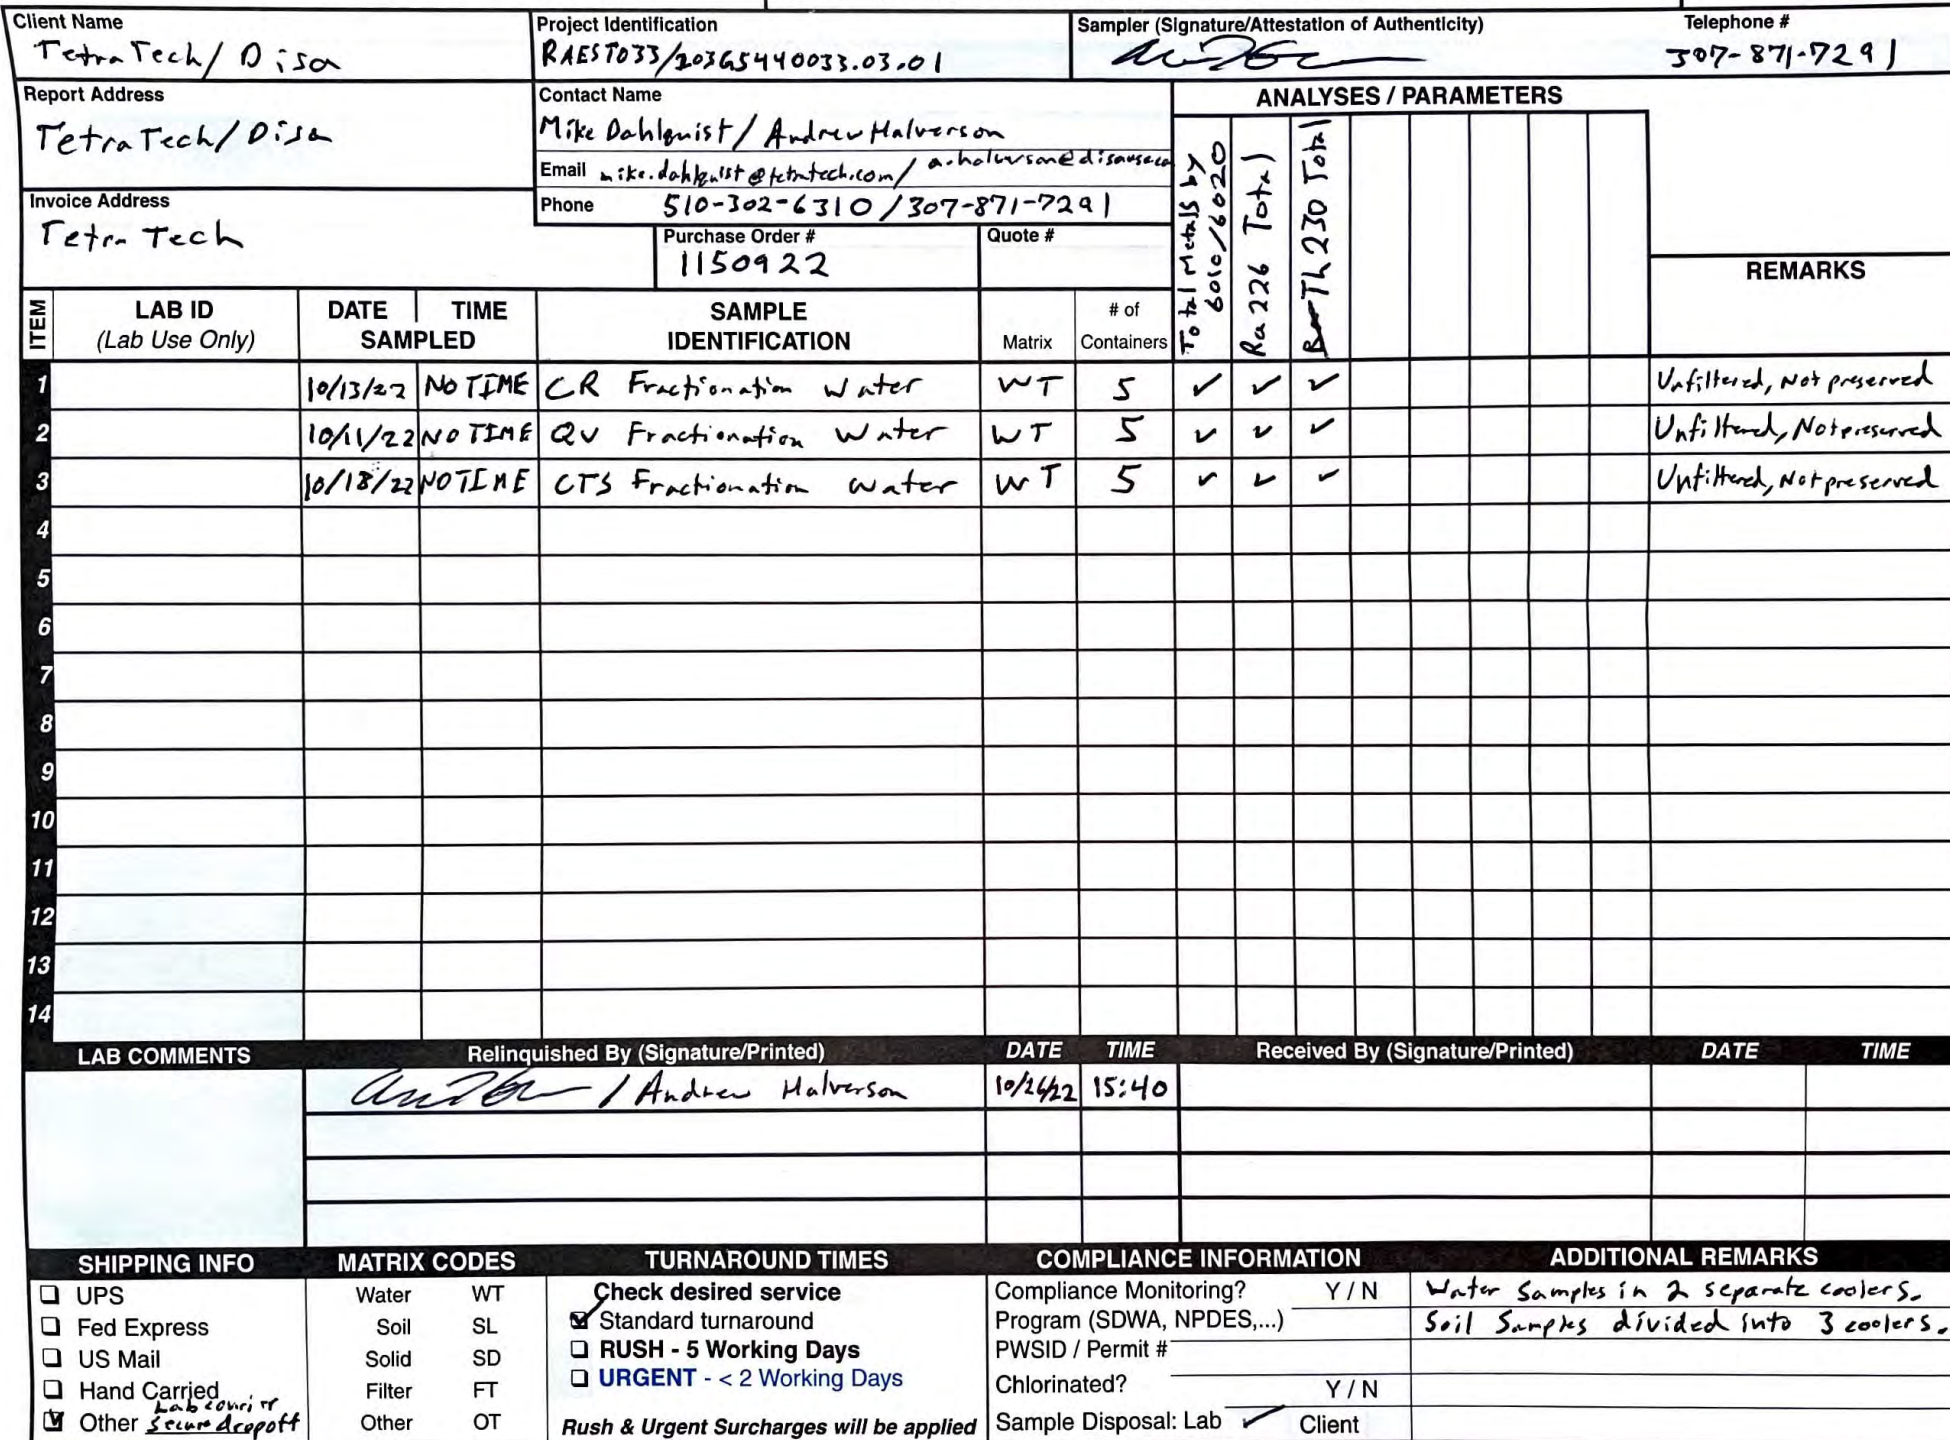 Client Name
TetraTech/ Disa
Project Identification
RAEST033/203G5440033.03.01
Sampler (Signature/Attestation of Authenticity)
Telephone #
307-871-7291
Report Address
TetraTech/Disa
Contact Name
Mike Dahlquist/ Andrew Halverson
Email mike.dahlquist@tetratech.com/
Phone 510-302-6310 / 307-871-7291
Invoice Address
Tetra Tech
Purchase Order #
1150922
Quote #
ANALYSES / PARAMETERS
Total Metals by
6010/6020
Ra 226 Total
Th 230 Total
REMARKS
ITEM
LAB ID
(Lab Use Only)
DATE TIME
SAMPLED
SAMPLE
IDENTIFICATION
Matrix
# of
Containers
1 10/13/22 NO TIME CR Fractionation Water WT 5 ✓ ✓ ✓ Unfiltered, Not preserved
2 10/11/22 NO TIME QV Fractionation Water WT 5 ✓ ✓ ✓ Unfiltered, Not preserved
3 10/18/22 NO TIME CTS Fractionation water WT 5 ✓ ✓ ✓ Unfiltered, Not preserved
4
5
6
7
8
9
10
11
12
13
14
LAB COMMENTS
Relinquished By (Signature/Printed) DATE TIME
Received By (Signature/Printed) DATE TIME
/ Andrew Halverson 10/26/22 15:40
SHIPPING INFO
UPS
Fed Express
US Mail
Hand Carried
Lab courier
Other secure dropoff
MATRIX CODES
Water WT
Soil SL
Solid SD
Filter FT
Other OT
TURNAROUND TIMES
Check desired service
Standard turnaround
RUSH - 5 Working Days
URGENT - < 2 Working Days
Rush & Urgent Surcharges will be applied
COMPLIANCE INFORMATION
Compliance Monitoring? Y / N
Program (SDWA, NPDES,...)
PWSID / Permit #
Chlorinated? Y / N
Sample Disposal: Lab ✓ Client
ADDITIONAL REMARKS
Water Samples in 2 separate coolers.
Soil Samples divided into 3 coolers.